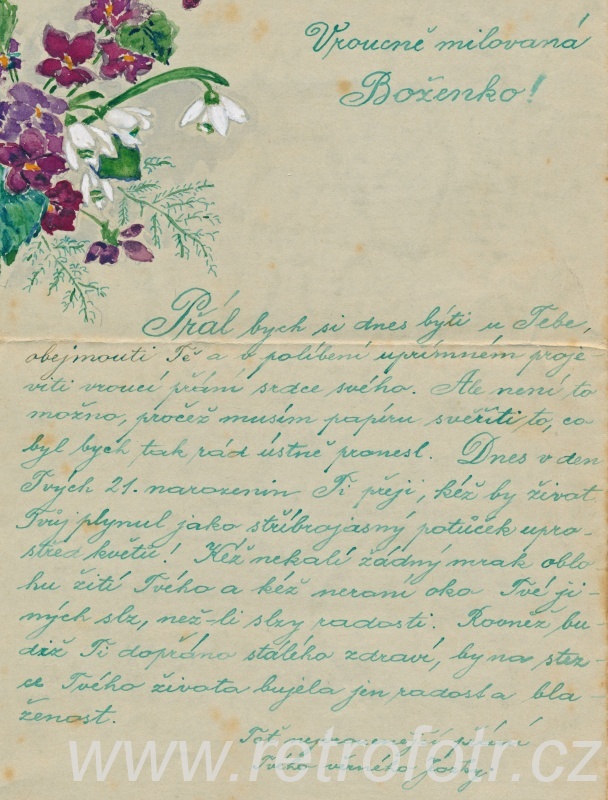 Vroucně milovaná
Boženko!
Přál bych si dnes býti u Tebe,
obejmouti Tě a v políbení upřímném proje
viti vroucí přání srdce svého. Ale není to
možno, pročež musím papíru svěřiti to, co
byl bych tak rád ústně pronesl. Dnes v den
Tvých 21. narozenin Ti přeji, kéž by život
Tvůj plynul jako stříbrojasný potůček upro-
střed květů! Kéž nekalí žádný mrak oblo
hu žití Tvého a kéž neroní oko Tvé ji-
ných slz, než-li slzy radosti. Rovněž bu-
diž Ti dopřáno stálého zdraví, by na stez-
ce Tvého života bujela jen radost a bla-
ženost.
Toť přání
Tvého věrného
www.retrofotr.cz